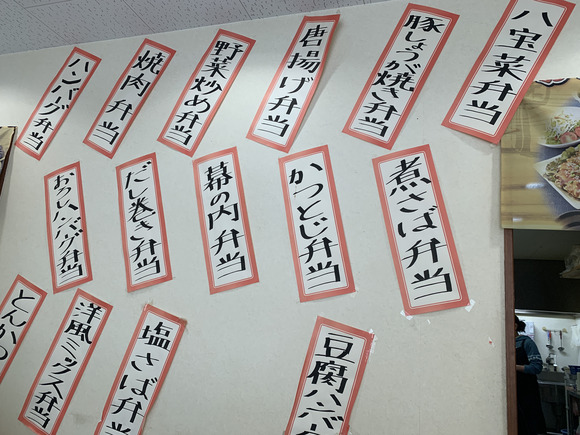 八宝菜弁当
豚しょうが焼き弁当
唐揚げ弁当
野菜炒め弁当
焼肉弁当
ハンバーグ弁当
煮さば弁当
かつとじ弁当
幕の内弁当
だし巻き弁当
おろしハンバーグ弁当
豆腐ハンバ
塩さば弁当
洋風ミックス弁当
とんかつ